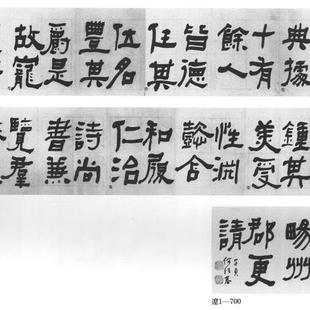 典據
十有
餘人
皆德
任其
位名
豐其
爵是
故寵
鍾其
美受
性淵
懿含
和履
仁治
詩尚
書兼
覽羣
暢州
郡更
請
子貞何紹基
遼1—700